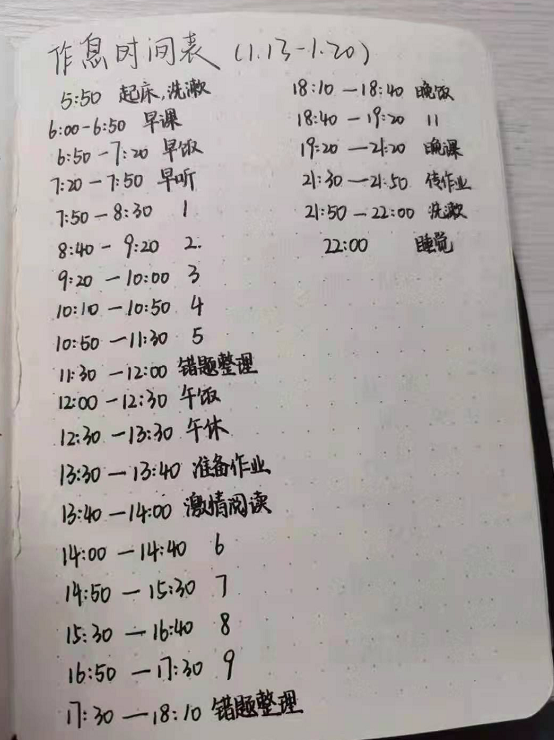 作息时间表 (1.13-1.20)
5:50 起床,洗漱
6:00-6:50 早课
6:50-7:20 早饭
7:20-7:50 早听
7:50-8:30 1
8:40-9:20 2.
9:20-10:00 3
10:10-10:50 4
10:50-11:30 5
11:30-12:00 错题整理
12:00-12:30 午饭
12:30-13:30 午休
13:30-13:40 准备作业
13:40-14:00 激情阅读
14:00-14:40 6
14:50-15:30 7
15:30-16:40 8
16:50-17:30 9
17:30-18:10 错题整理
18:10-18:40 晚饭
18:40-19:20 11
19:20-21:20 晚课
21:30-21:50 传作业
21:50-22:00 洗漱
22:00 睡觉